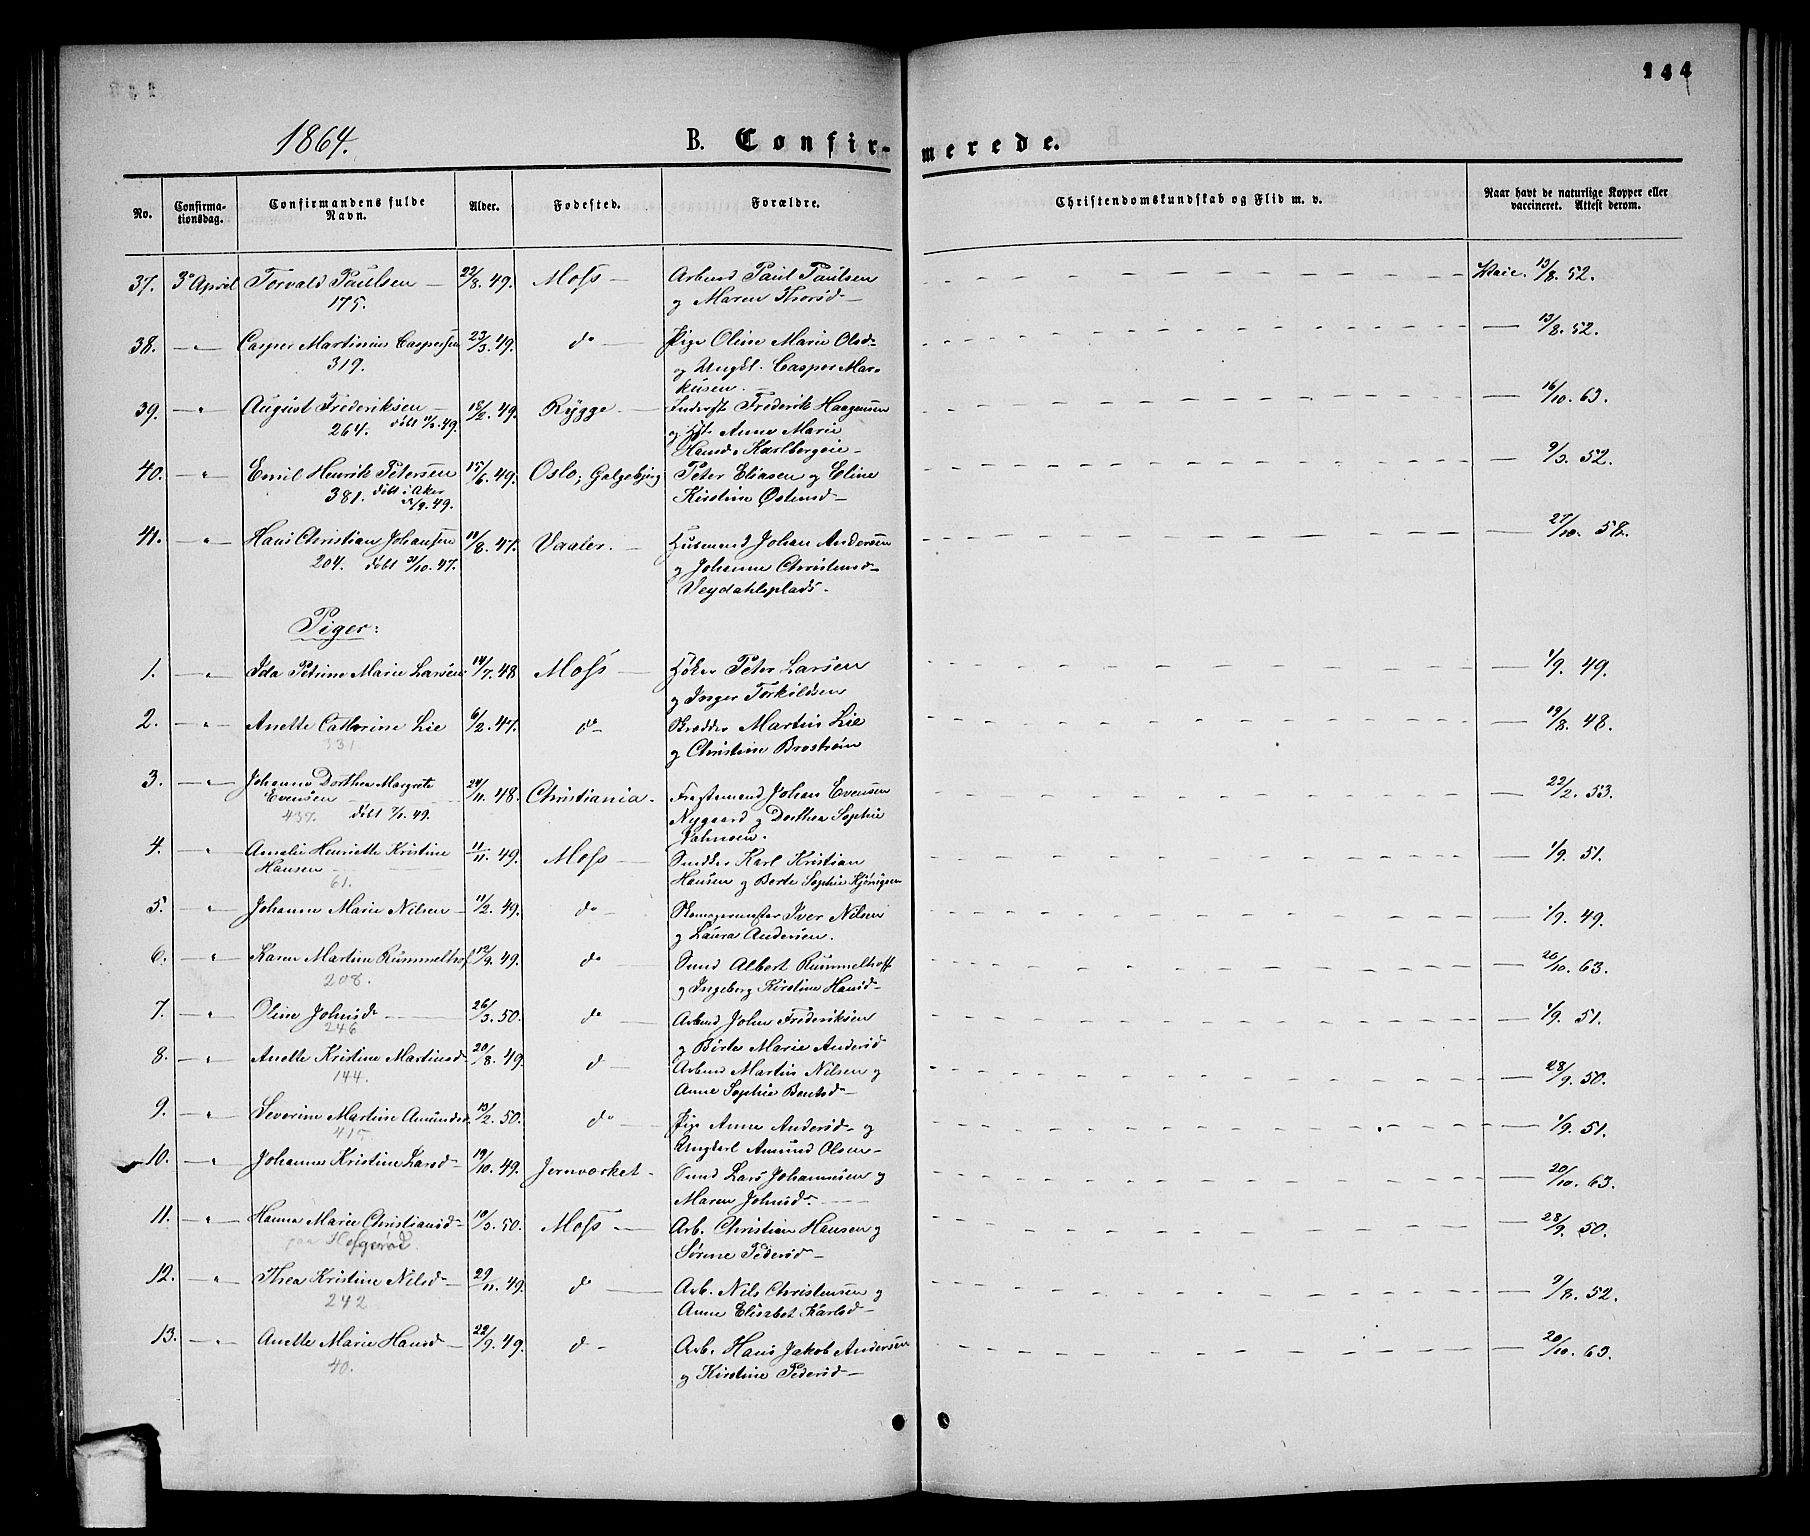 144
1864.
B. Confirmerede.
No. Confirmationsdag. Confirmandens fulde Navn. Alder. Fødested. Forældre. Christendomskundskab og Flid m. v. Naar havt de naturlige Kopper eller vaccineret. Attest derom.
37. 3' April Torvald Paulsen 22/8. 49. Moss Arbmd Paul Paulsen 13/8. 52.
175. og Maren Thorsd
38. Casper Martinius Caspersen 23/3. 49. do Pige Oline Marie Olsd 13/8. 52.
319. og Ungkl. Casper Mar-
kusen.
39. August Frederiksen 18/2. 49. Rygge Inderst Frederik Haagensen 16/10. 63.
264. døbt 11/3. 49. og Anne Marie
Hansd. Karlbergeie
40. Emil Henrik Petersen 15/6. 49. Oslo, Galgebjerg Peter Eliasen og Eline 9/3. 52.
381. døbt i Aker Kirstine Østensd
/9. 49.
41. Hans Christian Johansen 18/8. 47. Vaaler. Husmand Johan Andersen 27/10. 58.
204. døbt 31/10. 47. og Johanne Christensd
Veydahlsplads.
Piger:
1. Ida Petrine Marie Larsen 14/7. 48 Moss Høker Peter Larsen 1/9. 49.
og Inger Torkildsen
2. Anette Cathrine Lie 6/2. 47. do Skrædder Martin Lie 19/8. 48.
331. og Christine Brostrøm
3. Johanne Dorthea Margrete 24/11. 48. Christiania. Fragtemand Johan Evensen 22/2. 53.
Evensen Nygaard og Dorthea Sophie
437. døbt 7/1. 49.
4. Amalie Henriette Kristine 11/11. 49. Moss Snedker Karl Kristian 1/9. 51.
Hansen Hansen og Berte Sophie Kjønigsen
61.
5. Johanne Marie Nilsen 11/2. 49. do Skomagermester Iver Nilsen 1/9. 49.
og Laura Andersen.
6. Karen Martine Rummelhof 12/9. 49. do Smed Albert Rummelhoff 20/10. 63.
208. og Ingeborg Kirstine Hansd
7. Oline Johnsd 26/3. 50. do Arbmd John Frederiksen 1/9. 51.
246 og Birte Marie Andersd
8. Anette Kristine Martinsd 20/8. 49. d Arbmd Martin Nilsen og 28/9. 50.
144. Anne Sophie Bentsd
9. Severine Martine Amundsd. 13/2. 50. do Pige Anne Andersd og 1/9. 51.
415 Ungkarl Amund Olsen
10. Johanne Kristine Larsd 19/10. 49. Jernværket Smd Lars Johannesen og 20/10. 63.
Maren Johnsd
11. Hanna Marie Christiansd 10/3. 50. Moss Arb. Christian Hansen og 28/9. 50.
paa Hofgerød. Sørine Pedersd
12. Thea Kristine Nilsd 29/11. 49. do Arb. Nils Christensen og 9/8. 52.
242 Anne Elisabet Karlsd
13. Anette Marie Hansd 22/9. 49. d Arb. Hans Jakob Andersen 20/10. 63.
40. og Kirstine Pedersd